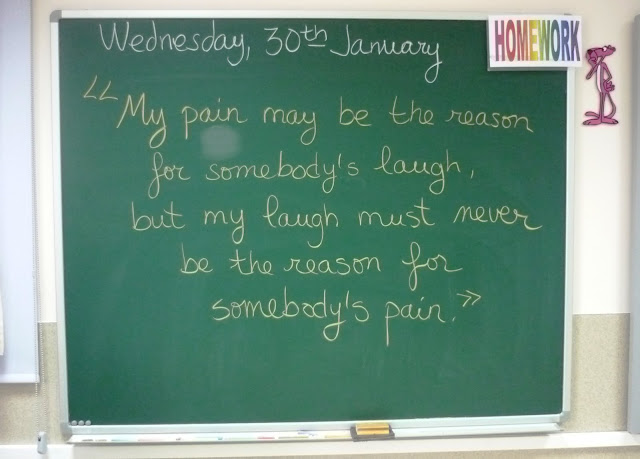 Wednesday, 30th January
HOMEWORK
“My pain may be the reason
for somebody's laugh,
but my laugh must never
be the reason for
somebody's pain.”